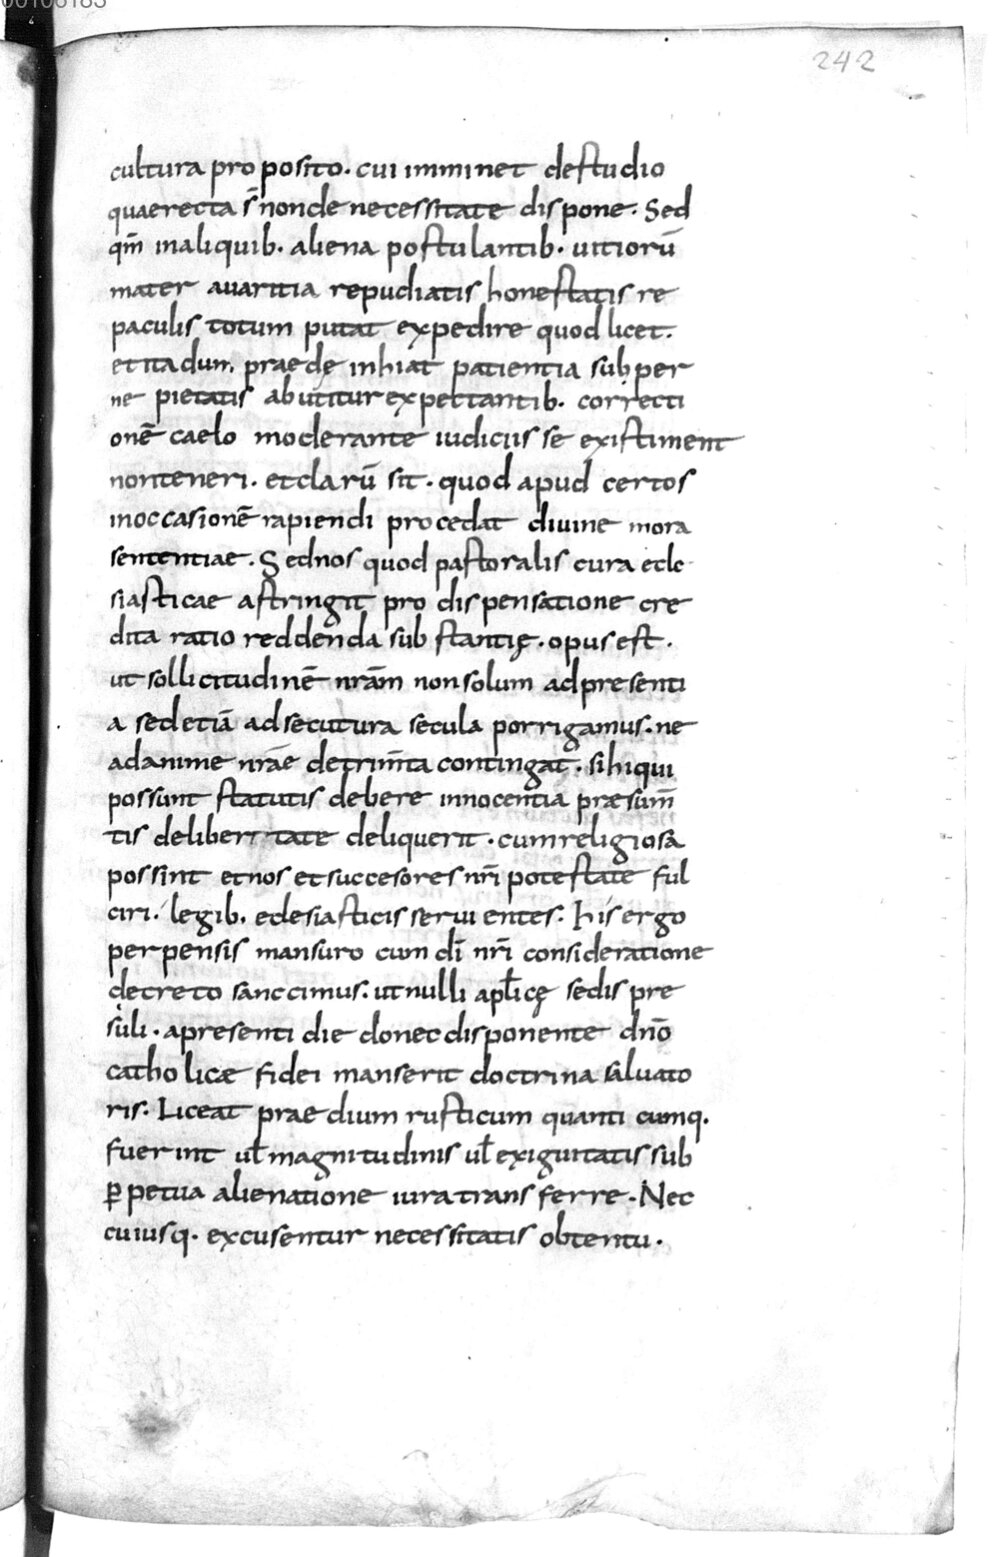 00108183
242
cultura proposito. cui imminet destudio
quaerecta s̄ nonde necessitate dispone. Sed
qm̄ inaliquib. aliena postulantib. uitiorū
mater auaritia repudiatis honestatis re
paculis totum putat expedire quod licet.
et ita dum praedę inhiat patientia subper
ne pietatis abutitur expectantib. correcti
onē caelo moderante iudiciis se existiment
nonteneri. etclarū sit. quod apud certos
inoccasionē rapiendi procedat diuine mora
sententiae. Sednos quod pastoralis cura ecle
siasticae astringit pro dispensatione cre
dita ratio reddenda substantię. opus est.
ut sollicitudinē nrām nonsolum adpresenti
a sedetiā adsecutura secula porrigamus. ne
adanime nrāe detrim̄ta contingat. sihiqui
possunt statutis debere innocentia præsum̄
tis delibertate deliquerit. cumreligiosa
possint etnos et succesores nr̄i potestate ful
ciri. legib. eclesiasticis seruientes: His ergo
perpensis mansuro cum dī nr̄i consideratione
decreto sanccimus: ut nulli apłicę sedis pre
suli. apresenti die donec disponente dnō
catholicæ fidei manserit doctrina saluato
ris. Liceat praedium rusticum quanticumq.
fuerint uł magnitudinis uł exiguitatis sub
ꝑpetua alienatione iura transferre. Nec
cuiusq. excusentur necessitatis obtentu.